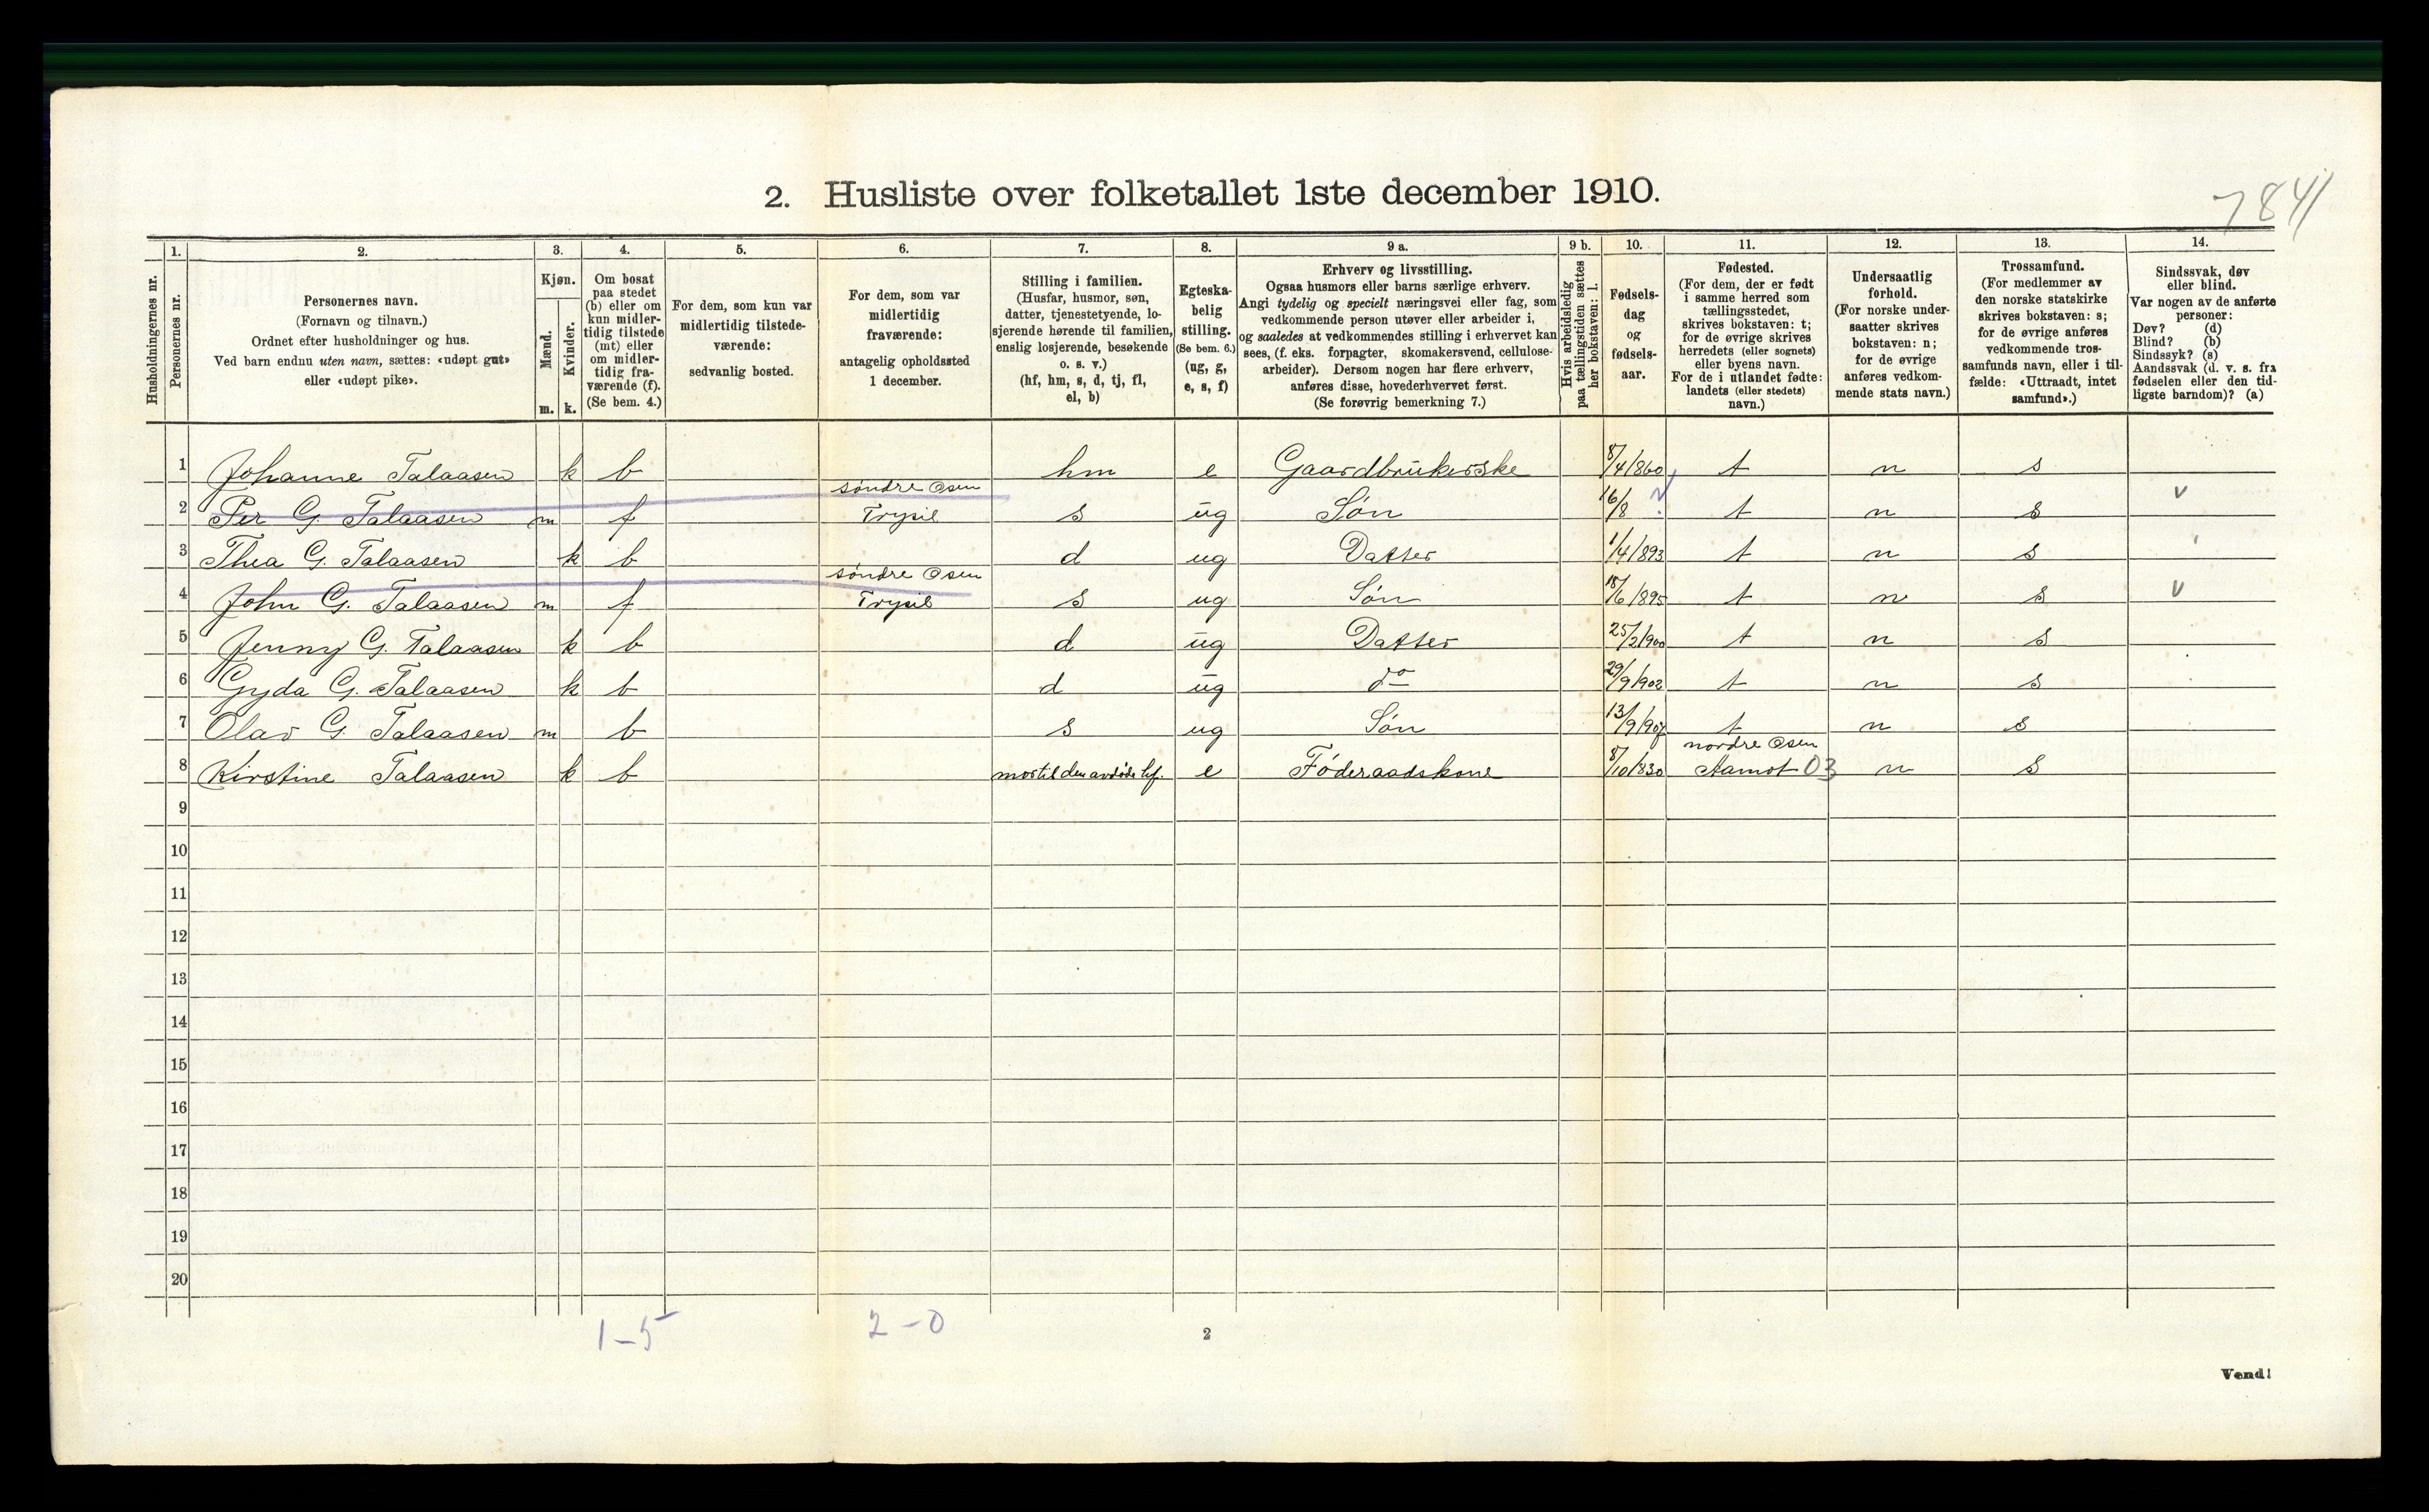 2. Husliste over folketallet 1ste december 1910.
7841
1. 2. 3. 4. 5. 6. 7. 8. 9 a. 9 b. 10. 11. 12. 13. 14.
Husholdningernes nr.
Personernes nr.
Personernes navn.
(Fornavn og tilnavn.)
Ordnet efter husholdninger og hus.
Ved barn endnu uten navn, sættes: «udøpt gut»
eller «udøpt pike».
Kjøn.
Mænd.
Kvinder.
m. k.
Om bosat
paa stedet
(b) eller om
kun midler-
tidig tilstede
(mt) eller
om midler-
tidig fra-
værende (f).
(Se bem. 4.)
For dem, som kun var
midlertidig tilstede-
værende:
sedvanlig bosted.
For dem, som var
midlertidig
fraværende:
antagelig opholdssted
1 december.
Stilling i familien.
(Husfar, husmor, søn,
datter, tjenestetyende, lo-
sjerende hørende til familien,
enslig losjerende, besøkende
o. s. v.)
(hf, hm, s, d, tj, fl,
el, b)
Egteska-
belig
stilling.
(Se bem. 6.)
(ug, g,
e, s, f)
Erhverv og livsstilling.
Ogsaa husmors eller barns særlige erhverv.
Angi tydelig og specielt næringsvei eller fag, som
vedkommende person utøver eller arbeider i,
og saaledes at vedkommendes stilling i erhvervet kan
sees, (f. eks. forpagter, skomakersvend, cellulose-
arbeider). Dersom nogen har flere erhverv,
anføres disse, hovederhvervet først.
(Se forøvrig bemerkning 7.)
Hvis arbeidsledig
paa tællingstiden sættes
her bokstaven: l.
Fødsels-
dag
og
fødsels-
aar.
Fødested.
(For dem, der er født
i samme herred som
tællingsstedet,
skrives bokstaven: t;
for de øvrige skrives
herredets (eller sognets)
eller byens navn.
For de i utlandet fødte:
landets (eller stedets)
navn.)
Undersaatlig
forhold.
(For norske under-
saatter skrives
bokstaven: n;
for de øvrige
anføres vedkom-
mende stats navn.)
Trossamfund.
(For medlemmer av
den norske statskirke
skrives bokstaven: s;
for de øvrige anføres
vedkommende tros-
samfunds navn, eller i til-
fælde: «Uttraadt, intet
samfund».)
Sindssvak, døv
eller blind.
Var nogen av de anførte
personer:
Døv? (d)
Blind? (b)
Sindssyk? (s)
Aandssvak (d. v. s. fra
fødselen eller den tid-
ligste barndom)? (a)
1 Johanne Talaasen k b hm e Gaardbrukerske 8/4/860 t n s
søndre Osen
2 Per G. Talaasen m f Trysil s ug Søn 16/8 ? t n s v
3 Thea G. Talaasen k b d ug Datter 1/4/893 t n s
søndre Osen
4 John G. Talaasen m f Trysil s ug Søn 18/6/895 t n s v
5 Jenny G. Talaasen k b d ug Datter 25/2/900 t n s
6 Gyda G. Talaasen k b d ug do 29/9/902 t n s
7 Olav G. Talaasen m b s ug Søn 13/9/907 t n s
nordre Osen
8 Kirstine Talaasen k b mor til den avdøde hf. e Føderaadskone 8/10/830 Aamot 03 n s
9
10
11
12
13
14
15
16
17
18
19
20
1-5 2-0
2
Vend!